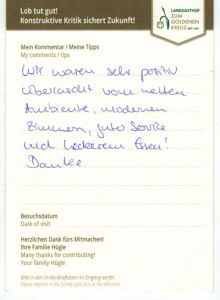 Lob tut gut!
Konstruktive Kritik sichert Zukunft!
LANDGASTHOF
ZUM
GOLDENEN
KREUZ
Mein Kommentar / Meine Tipps
My comments / tips
Wir waren sehr positiv
überrascht vom netten
Ambiente, modernen
Zimmern, guter Service
und leckerem Essen!
Danke.
Besuchsdatum
Date of visit
Herzlichen Dank fürs Mitmachen!
Ihre Familie Hügle
Many thanks for contributing!
Your family Hügle
Bitte in den Smiley-Briefkasten im Eingang werfen.
Please deposit in the Smiley post box in the entrance.